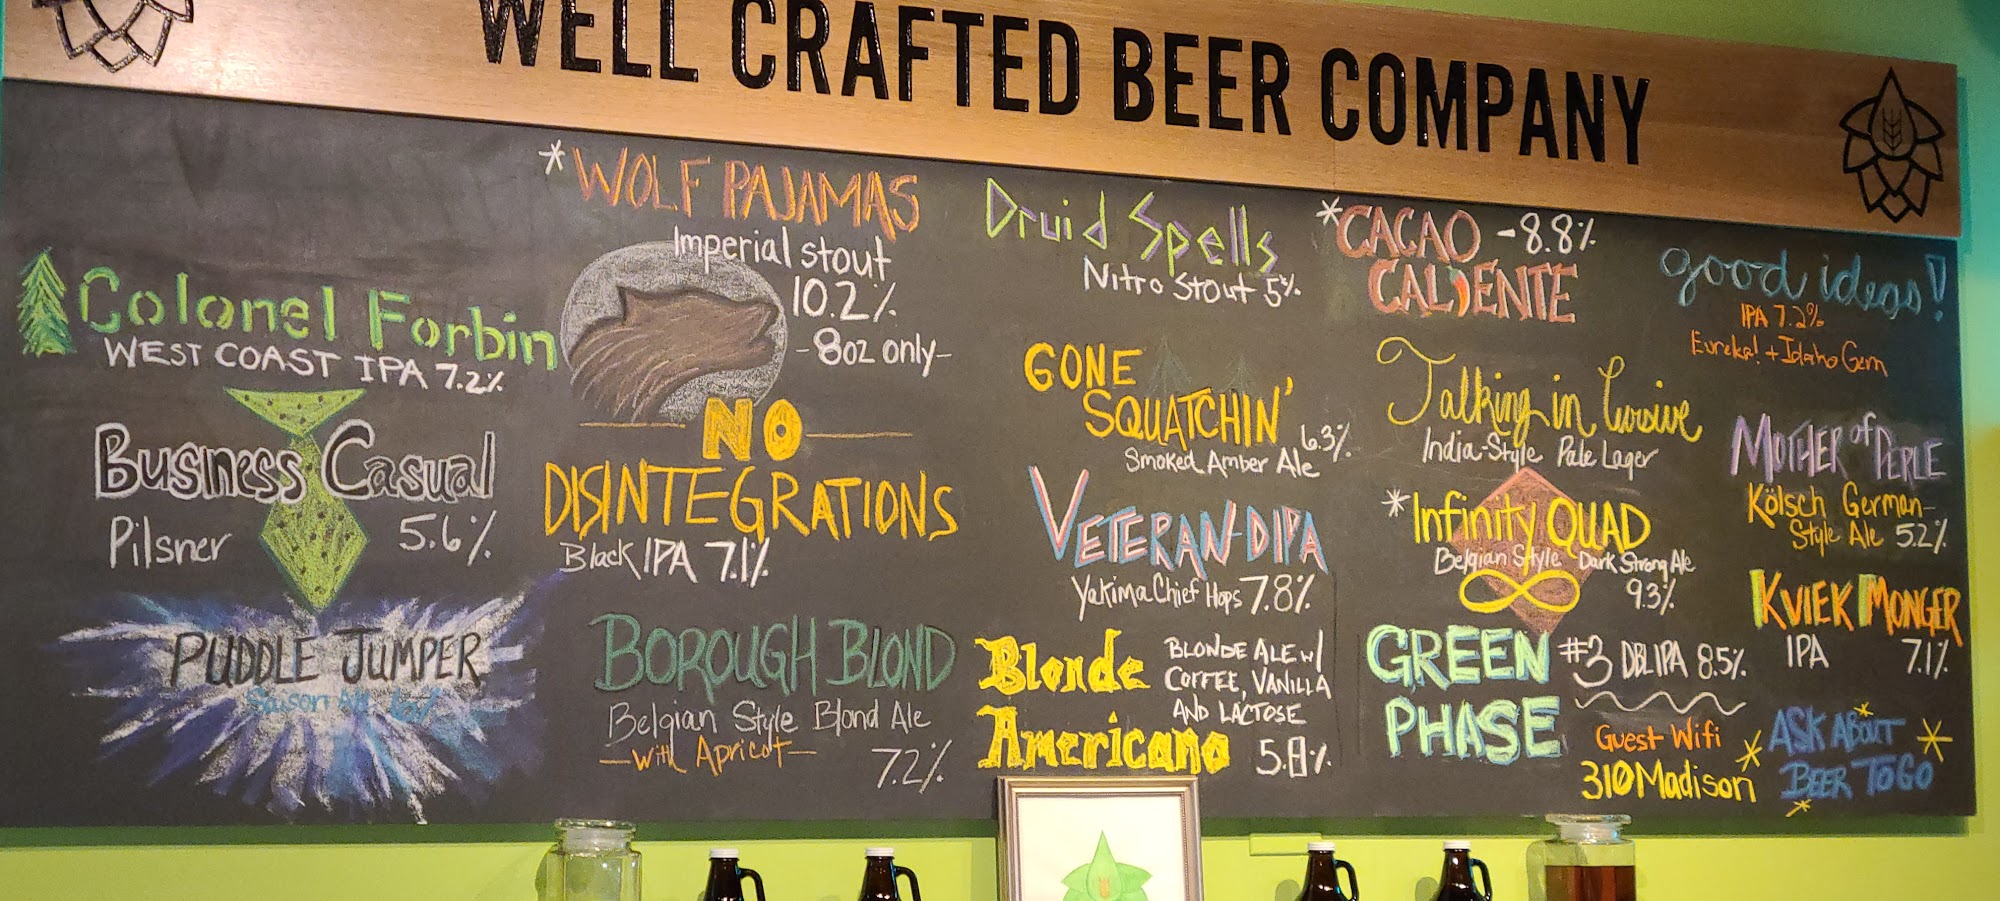 WELL CRAFTED BEER COMPANY
Colonel Forbin
WEST COAST IPA 7.2%
Business Casual
Pilsner 5.6%
PUDDLE JUMPER
Saison
*WOLF PAJAMAS
Imperial stout
10.2%
-8oz only-
NO
DISINTEGRATIONS
Black IPA 7.1%
BOROUGH BLOND
Belgian Style Blond Ale
-with Apricot-
7.2%
Druid Spells
Nitro Stout 5%
GONE
SQUATCHIN'
Smoked Amber Ale 6.3%
VETERAN-DIPA
Yakima Chief Hops 7.8%
Blonde
Americano
BLONDE ALE w/
COFFEE, VANILLA
AND LACTOSE
5.8%
*CACAO -8.8%
CALIENTE
Talking in Cursive
India-Style Pale Lager
*Infinity QUAD
Belgian Style Dark Strong Ale
9.3%
GREEN
PHASE
#3 DBL IPA 8.5%
Guest Wifi
310Madison
good ideas!
IPA 7.2%
Eureka! + Idaho Gem
MOTHER of PEPLE
Kölsch German-
Style Ale 5.2%
KVIEK MONGER
IPA 7.1%
*ASK ABOUT
BEER TO GO*